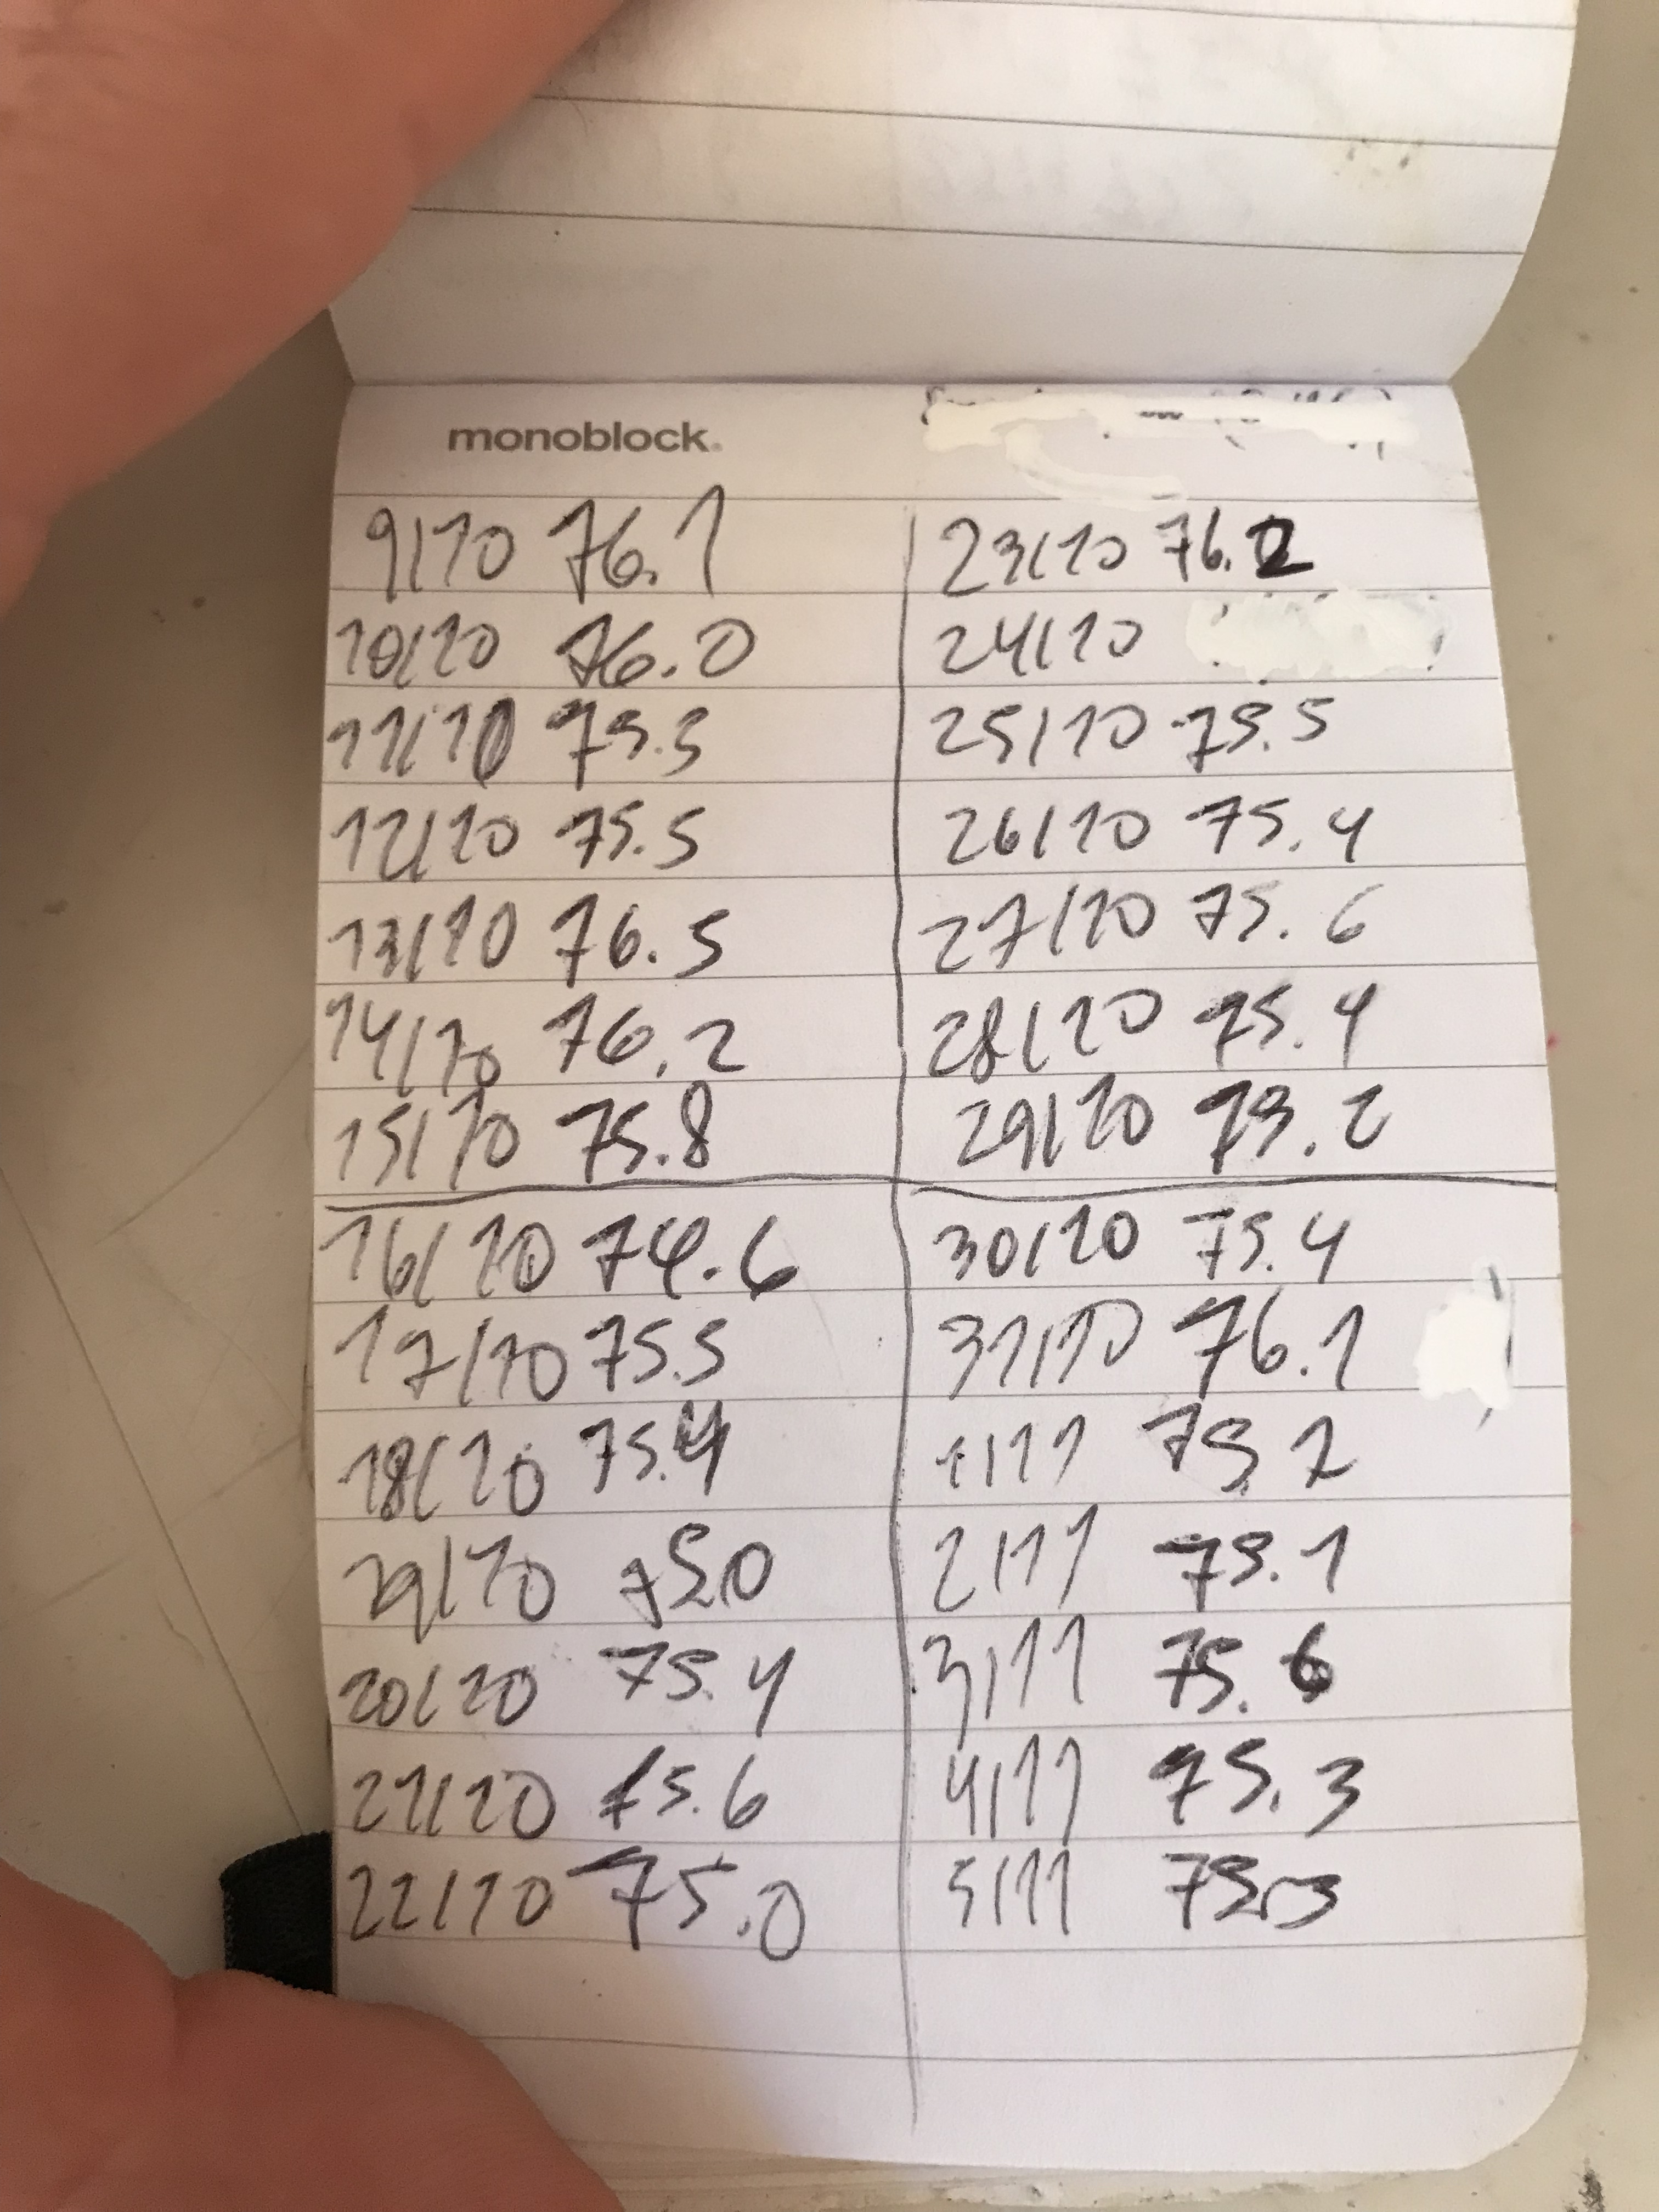 monoblock.
9/10 76.1
10/10 76.0
11/10 75.3
12/10 75.5
13/10 76.5
14/10 76.2
15/10 75.8
16/10 74.6
17/10 75.5
18/10 75.4
19/10 75.0
20/10 75.4
21/10 75.6
22/10 75.0
23/10 76.2
24/10
25/10 75.5
26/10 75.4
27/10 75.6
28/10 75.4
29/10 75.2
30/10 75.4
31/10 76.1
1/11 75.2
2/11 75.1
3/11 75.6
4/11 75.3
5/11 75.3